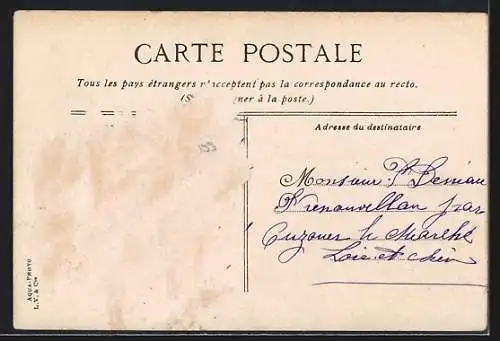 CARTE POSTALE
Tous les pays étrangers n'acceptent pas la correspondance au recto.
(S gner à la poste.)
Adresse du destinataire
Monsieur
par
Ouzouer le Marché
Loir et Cher
AQUA-PHOTO
L. V. & Cie